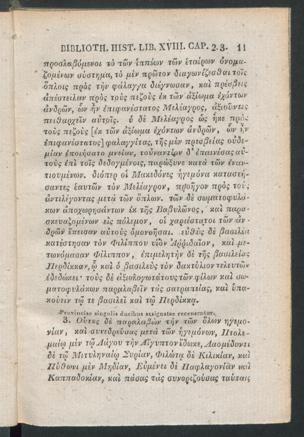 BIBLIOTH. HIST. LIB. XVIII. CAP. 2.3. 11
προσλαβόμενοι τὸ τῶν ἱππέων τῶν ἑταίρων ὀνομα-
ζομένων σύστημα, τὸ μὲν πρῶτον διαγωνίζεσθαι τοῖς
ὅπλοις πρὸς τὴν φάλαγγα διέγνωσαν, καὶ πρέσβεις
ἀπέστειλαν πρὸς τοὺς πεζοὺς ἐκ τῶν ἀξίωμα ἐχόντων
ἀνδρῶν, ὧν ἦν ἐπιφανέστατος Μελέαγρος, ἀξιοῦντες
πειθαρχεῖν αὐτοῖς. ὁ δὲ Μελέαγρος ὡς ἧκε πρὸς
τοὺς πεζοὺς [ἐκ τῶν ἀξίωμα ἐχόντων ἀνδρῶν, ὧν ἦν
ἐπιφανέστατος] φαλαγγίτας, τῆς μὲν πρεσβείας οὐδε-
μίαν ἐποιήσατο μνείαν, τοὐναντίον δ' ἐπαινέσας αὐ-
τοὺς ἐπὶ τοῖς δεδογμένοις, παρώξυνε κατὰ τῶν ἐναν-
τιουμένων. διόπερ οἱ Μακεδόνες ἡγεμόνα καταστή-
σαντες ἑαυτῶν τὸν Μελέαγρον, προῆγον πρὸς τοὺς
ἀντιλέγοντας μετὰ τῶν ὅπλων. τῶν δὲ σωματοφυλά-
κων ἀποχωρησάντων ἐκ τῆς Βαβυλῶνος, καὶ παρα-
σκευαζομένων εἰς πόλεμον, οἱ χαριέστατοι τῶν ἀν-
δρῶν ἔπεισαν αὐτοὺς ὁμονοῆσαι. εὐθὺς δὲ βασιλέα
κατέστησαν τὸν Φιλίππου υἱὸν Ἀῤῥιδαῖον, καὶ με-
τωνόμασαν Φίλιππον, ἐπιμελητὴν δὲ τῆς βασιλείας
Περδίκκαν, ᾧ καὶ ὁ βασιλεὺς τὸν δακτύλιον τελευτῶν
ἐδεδώκει· τοὺς δὲ ἀξιολογωτάτους τῶν φίλων καὶ σω-
ματοφυλάκων παραλαβεῖν τὰς σατραπείας, καὶ ὑπα-
κούειν τῷ τε βασιλεῖ καὶ τῷ Περδίκκᾳ.
Provinciae singulis ducibus assignatae recensentur.
3. Οὗτος δὲ παραλαβὼν τὴν τῶν ὅλων ἡγεμο-
νίαν, καὶ συνεδρεύσας μετὰ τῶν ἡγεμόνων, Πτολε-
μαίῳ μὲν τῷ Λάγου τὴν Αἴγυπτον ἔδωκε, Λαομέδοντι
δὲ τῷ Μιτυληναίῳ Συρίαν, Φιλώτᾳ δὲ Κιλικίαν, καὶ
Πύθωνι μὲν Μηδίαν, Εὐμένει δὲ Παφλαγονίαν καὶ
Καππαδοκίαν, καὶ πάσας τὰς συνοριζούσας ταύταις